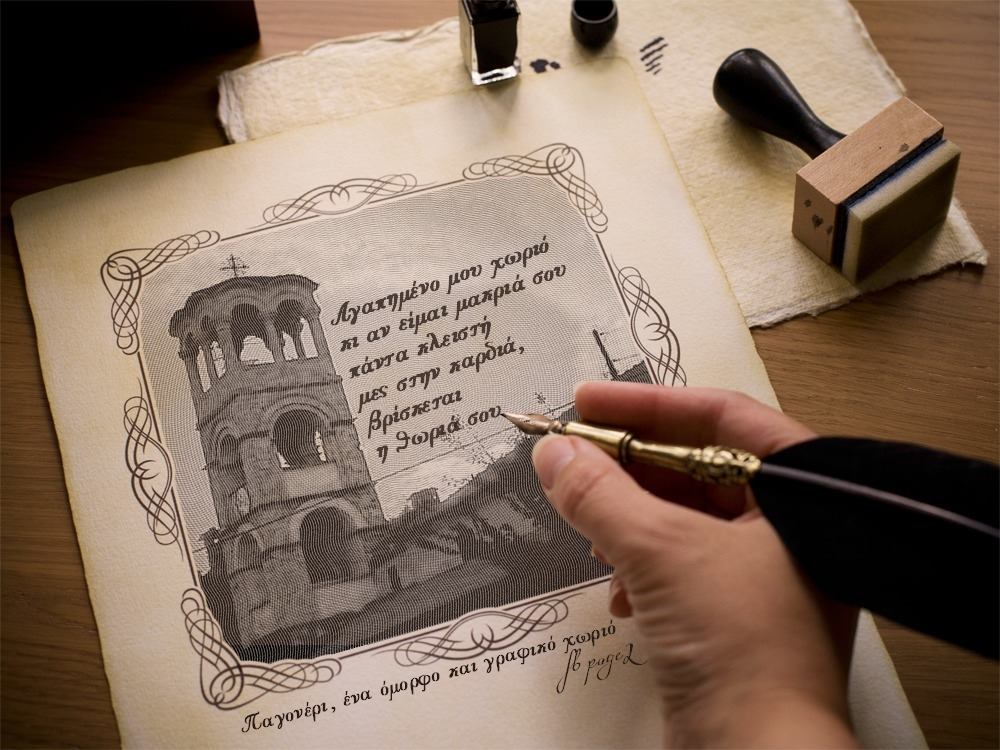 Αγαπημένο μου χωριό
κι αν είμαι μακριά σου
πάντα κλειστή
μες στην καρδιά,
βρίσκεται
η θωριά σου
Παγονέρι, ένα όμορφο και γραφικό χωριό
fb page